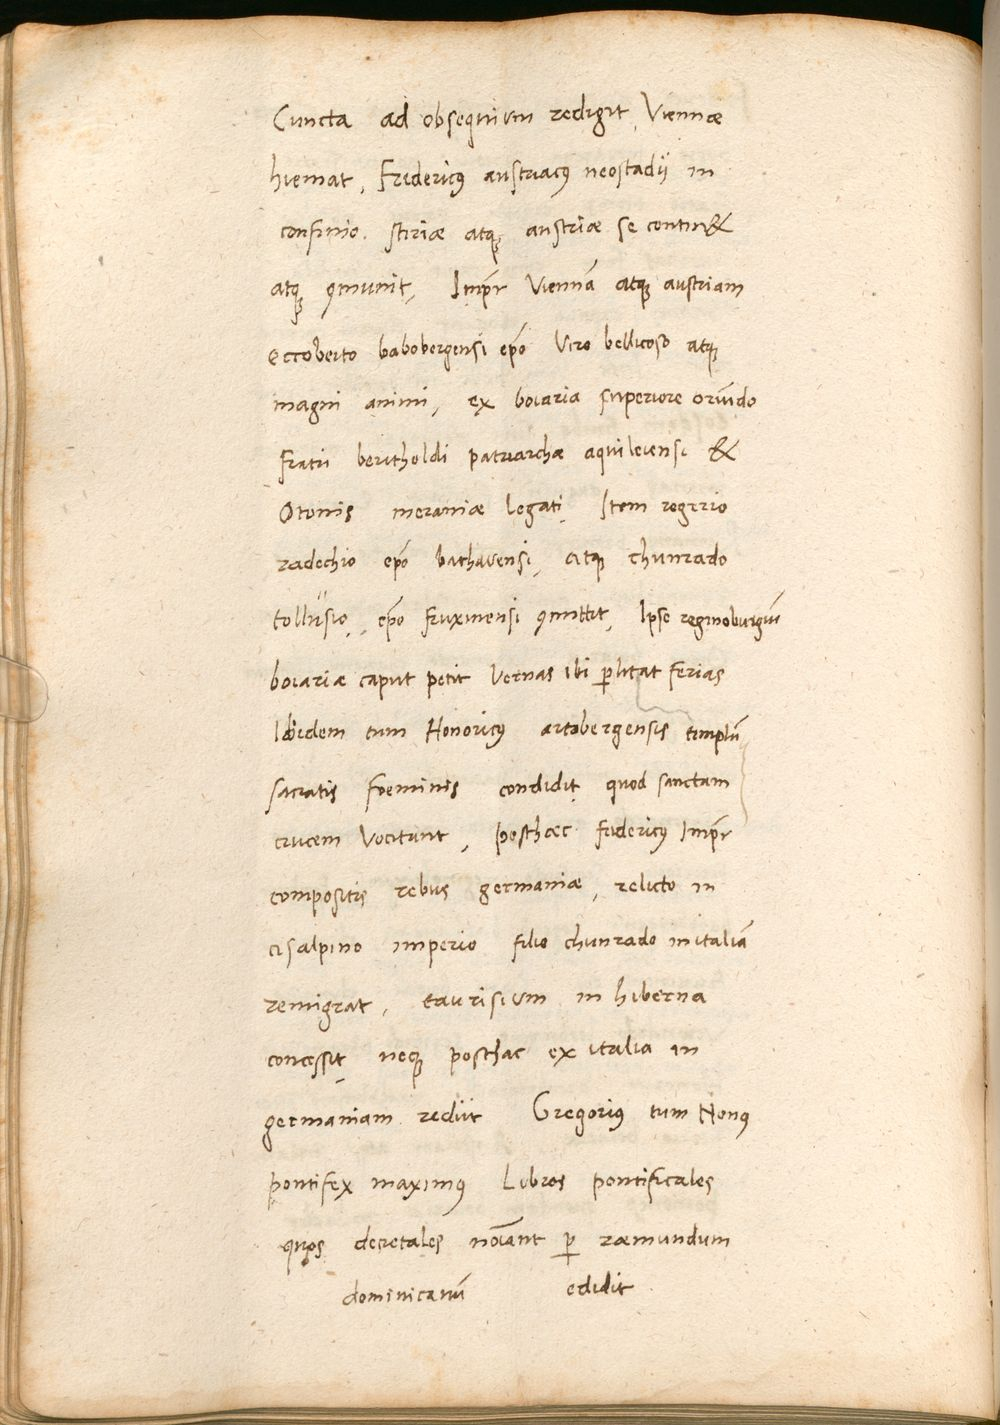 Cuncta ad obsequium redigit, Viennæ
hiemat, Fridericꝰ austriacꝰ neostadij in
confinio. stiriæ atqꝫ austriæ se contin&
atqꝫ ꝯmunit, Impr̄ Viennā atqꝫ austriam
Eccoberto babobergensi ep̄o Viro bellicoso atqꝫ
magni animi, ex boiaria superiore oriūdo
fratri bertholdi patriarchæ aquileiensi &
Otonis meraniæ legati Item
radechio ep̄o bathavensi, atqꝫ chunrado
ep̄o fruxinensi ꝯmittit, Ipse reginoburgiū
boiariæ caput petit Vernas ibi ꝑlitat ferias
Ibidem tum Honoricꝰ artobergensis templū
sacratis foeminis condidit quod sanctam
crucem Vocitant, posthæc fridericꝰ Impr̄
compositis rebus germaniæ, relicto in
cisalpino imperio filio chunrado in italiā
remigrat, taurisium in hiberna
concessit neqꝫ posthac ex italia in
germaniam rediit Gregorius tum Nonꝰ
pontifex maximꝰ Libros pontificales
quos decretales noīant ꝑ ræmundum
dominicanū edidit